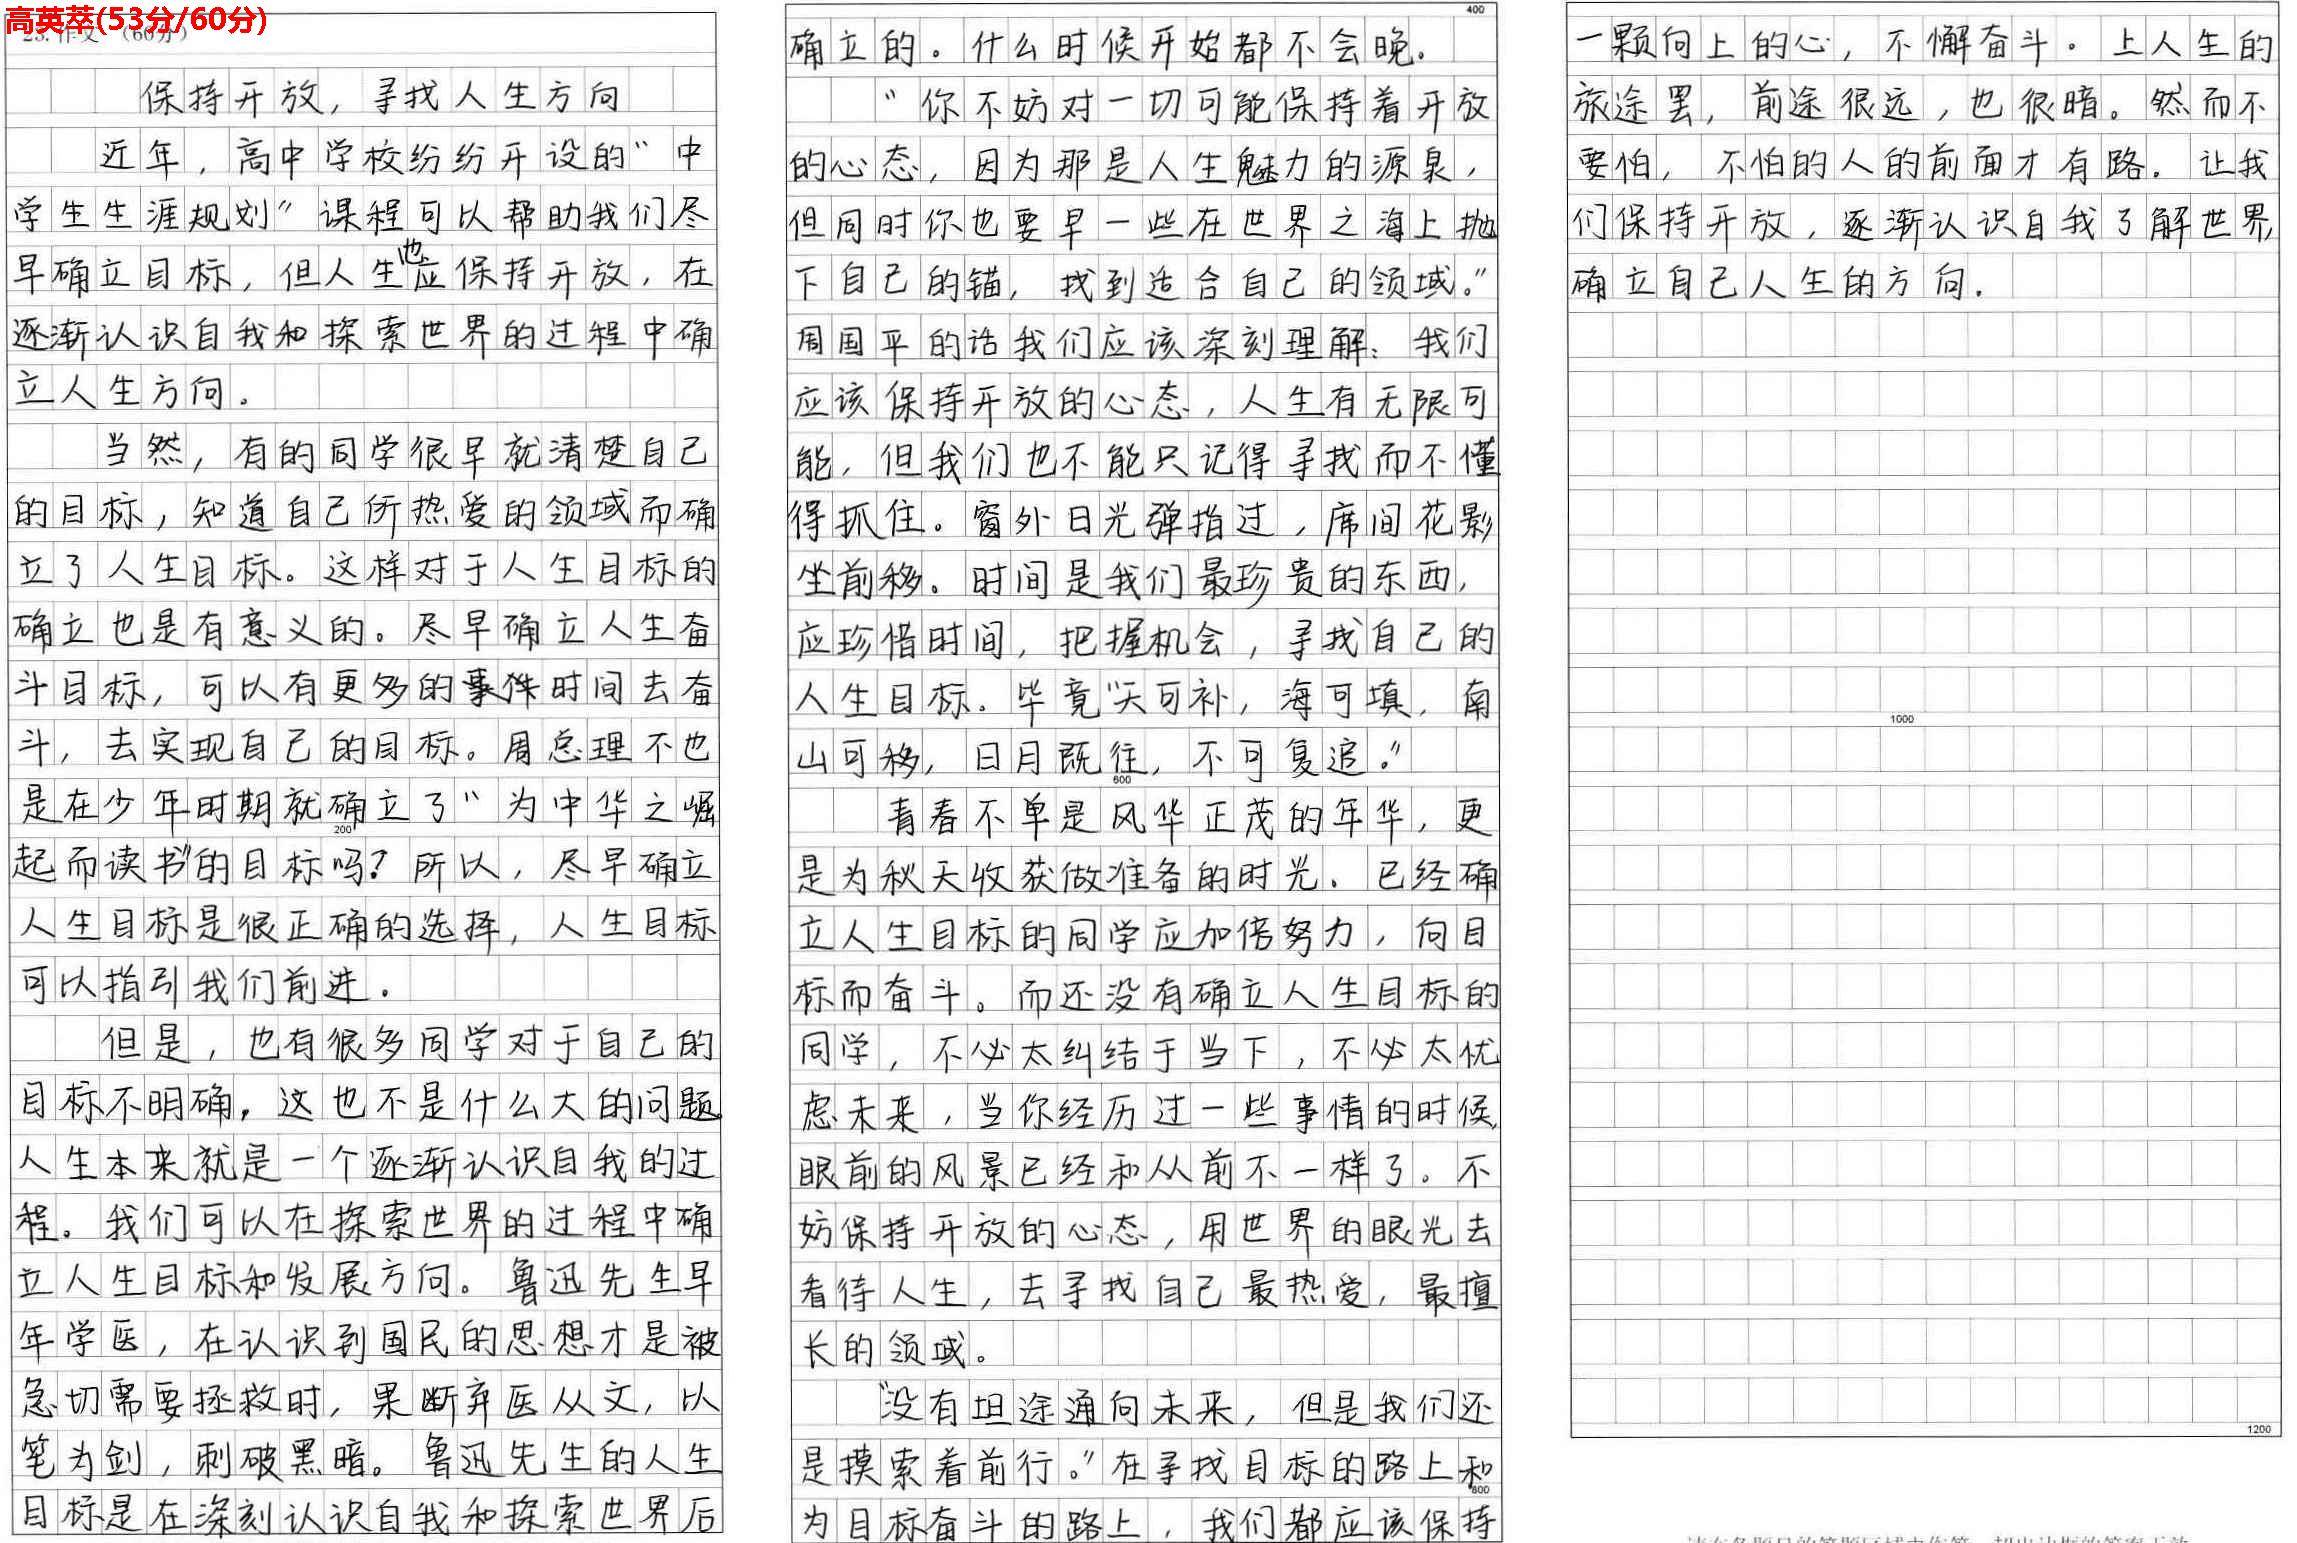 高英萃(53分/60分)
23. 作文 （60分）
保持开放，寻找人生方向
近年，高中学校纷纷开设的“中
学生生涯规划”课程可以帮助我们尽
早确立目标，但人生也应保持开放，在
逐渐认识自我和探索世界的过程中确
立人生方向。
当然，有的同学很早就清楚自己
的目标，知道自己所热爱的领域而确
立了人生目标。这样对于人生目标的
确立也是有意义的。尽早确立人生奋
斗目标，可以有更多的时间去奋
斗，去实现自己的目标。周总理不也
是在少年时期就确立了“为中华之崛
200
起而读书”的目标吗？所以，尽早确立
人生目标是很正确的选择，人生目标
可以指引我们前进。
但是，也有很多同学对于自己的
目标不明确，这也不是什么大的问题
人生本来就是一个逐渐认识自我的过
程。我们可以在探索世界的过程中确
立人生目标和发展方向。鲁迅先生早
年学医，在认识到国民的思想才是被
急切需要拯救时，果断弃医从文，以
笔为剑，刺破黑暗。鲁迅先生的人生
目标是在深刻认识自我和探索世界后
400
确立的。什么时候开始都不会晚。
“你不妨对一切可能保持着开放
的心态，因为那是人生魅力的源泉，
但同时你也要早一些在世界之海上抛
下自己的锚，找到适合自己的领域。”
周国平的话我们应该深刻理解：我们
应该保持开放的心态，人生有无限可
能，但我们也不能只记得寻找而不懂
得抓住。窗外日光弹指过，席间花影
坐前移。时间是我们最珍贵的东西，
应珍惜时间，把握机会，寻找自己的
人生目标。毕竟“天可补，海可填，南
山可移，日月既往，不可复追。”
600
青春不单是风华正茂的年华，更
是为秋天收获做准备的时光。已经确
立人生目标的同学应加倍努力，向目
标而奋斗。而还没有确立人生目标的
同学，不必太纠结于当下，不必太忧
虑未来，当你经历过一些事情的时候，
眼前的风景已经和从前不一样了。不
妨保持开放的心态，用世界的眼光去
看待人生，去寻找自己最热爱，最擅
长的领域。
“没有坦途通向未来，但是我们还
是摸索着前行。”在寻找目标的路上和
800
为目标奋斗的路上，我们都应该保持
一颗向上的心，不懈奋斗。上人生的
旅途罢，前途很远，也很暗。然而不
要怕，不怕的人的前面才有路。让我
们保持开放，逐渐认识自我了解世界，
确立自己人生的方向。
1000
1200